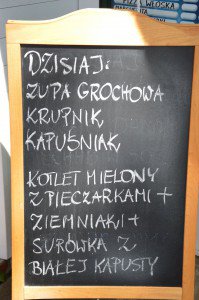 PIZZA WŁOSKA
DZISIAJ:
ZUPA GROCHOWA
KRUPNIK
KAPUŚNIAK
KOTLET MIELONY
Z PIECZARKAMI +
ZIEMNIAKI +
SURÓWKA Z
BIAŁEJ KAPUSTY